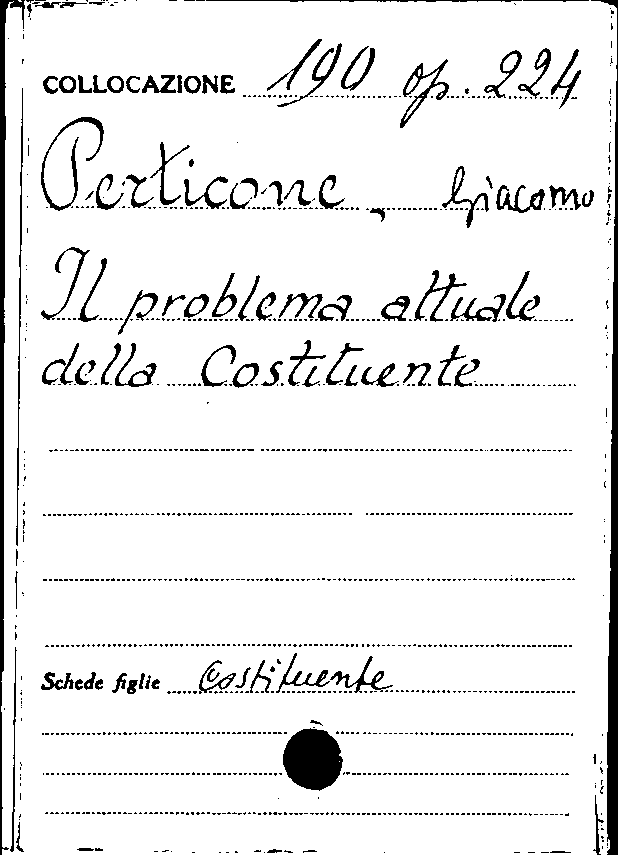 COLLOCAZIONE 190 op. 224
Perticone, Giacomo
Il problema attuale
della Costituente
Schede figlie Costituente